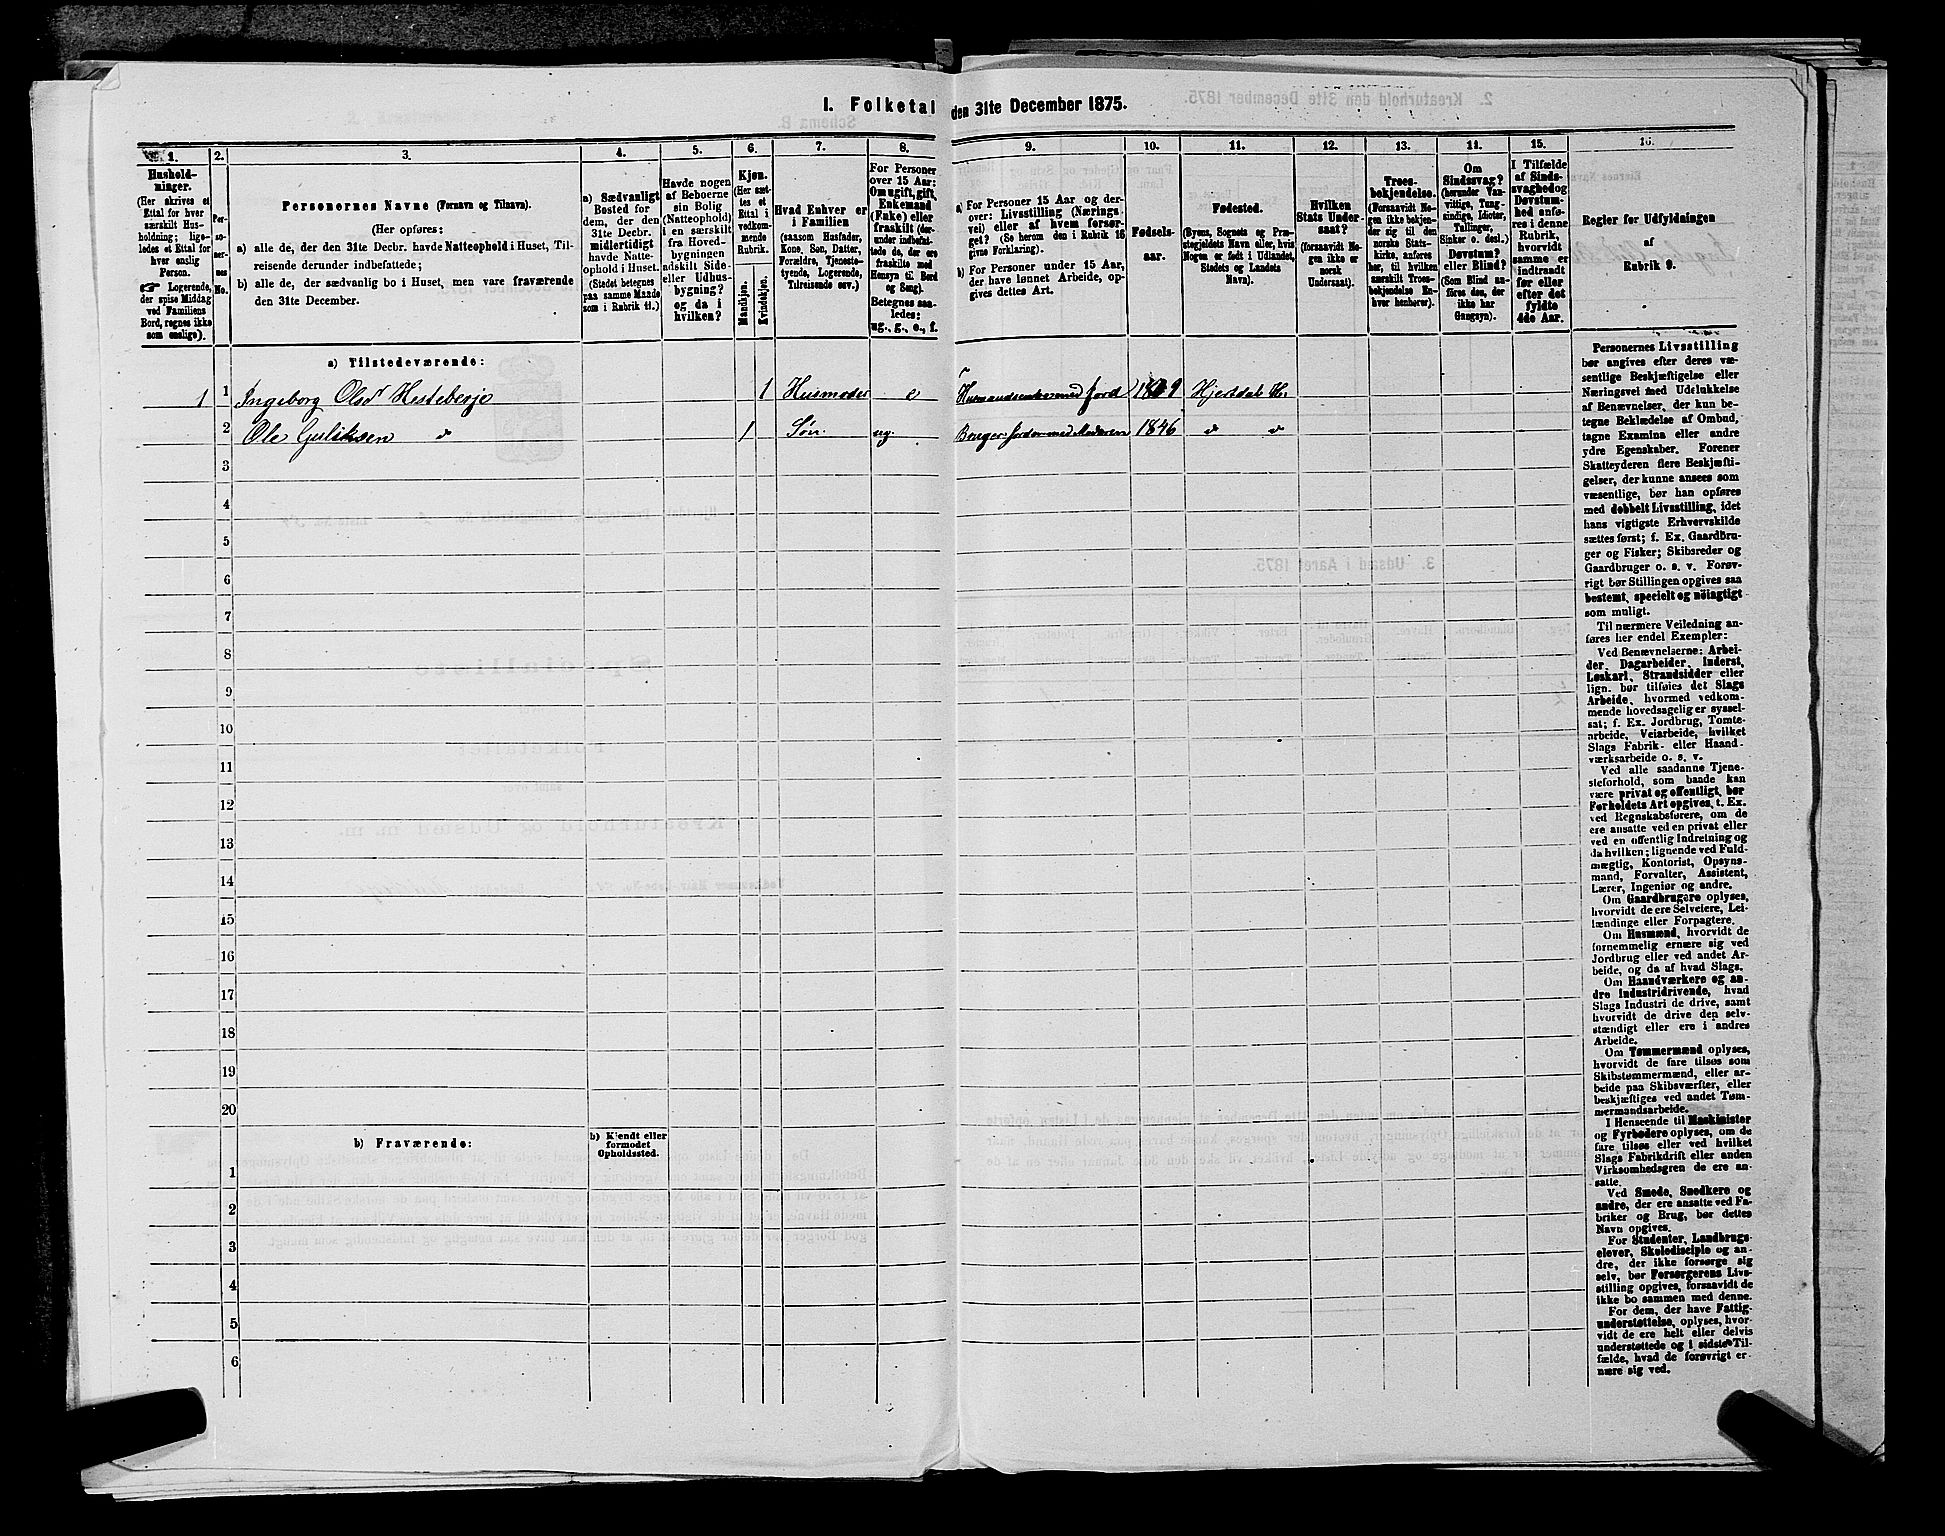 I. Folketal den 31te December 1875.
1. 2. 3. 4. 5. 6. 7. 8. 9. 10. 11. 12. 13. 11. 15. 16.
Hushold-
ninger.
(Her skrives et
Ettal for hver
særskilt Hus-
holdning; lige-
ledes et Ettal for
hver enslig
Person.
☞ Logerende,
der spise Middag
ved Familiens
Bord, regnes ikke
som enslige).
Per-
so-
ner-
nes
No.
Personernes Navne (Fornavn og Tilnavn).
(Her opføres:
a) alle de, der den 31te Decbr. havde Natteophold i Huset, Til-
reisende derunder indbefattede;
b) alle de, der sædvanlig bo i Huset, men vare fraværende
den 31te December.
a) Sædvanligt
Bosted for
dem, der den
31te Decbr.
midlertidigt
havde Natte-
ophold i Huset.
(Stedet betegnes
paa samme Maade
som i Rubrik 11.)
Havde nogen
af Beboerne
sin Bolig
(Natteophold)
i en særskilt
fra Hoved-
bygningen
adskilt Side-
eller Udhus-
bygning?
og da i
hvilken?
Kjøn.
(Her sæt-
tes et
Ettal i
vedkom-
mende
Rubrik.
Mandkjøn.
Kvindekjøn.
Hvad Enhver er
i Familien
(saasom Husfader,
Kone, Søn, Datter,
Forældre, Tjeneste-
tyende, Logerende,
Tilreisende osv.)
For Personer
over 15 Aar:
Om ugift, gift,
Enkemand
(Enke) eller
fraskilt (der-
under indbefat-
tede de, der ere
fraskilte med
Hensyn til Bord
og Seng).
Betegnes saa-
ledes:
ug., g., e., f.
a) For Personer 15 Aar og der-
over: Livsstilling (Nærings-
vei) eller af hvem forsør-
get? (Se herom den i Rubrik 16
givne Forklaring).
b) For Personer under 15 Aar,
der have lønnet Arbeide, op-
gives dettes Art.
Fødsels-
aar.
Fødested.
(Byens, Sognets og Præ-
stegjeldets Navn eller, hvis
Nogen er født i Udlandet,
Stedets og Landets
Navn).
Hvilken
Stats Under-
saat?
(forsaavidt No-
gen ikke er
norsk
Undersaat).
Troes-
bekjendelse.
(Forsaavidt No-
gen ikke bekjen-
der sig til den
norske Stats-
kirke, anføres
her, til hvilken
særskilt Troes-
bekjendelse En-
hver henhører).
Om
Sindssvag?
(herunder Van-
vittige, Tung-
sindige, Idioter,
Tullinger,
Sinker o. desl.)
Døvstum?
eller Blind?
(Som Blind an-
føres den, der
ikke har
Gangsyn).
I Tilfælde
af Sinds-
svaghed og
Døvstum-
hed anfø-
res i denne
Rubrik,
hvorvidt
samme er
indtraadt
før eller
efter det
fyldte
4de Aar.
Regler for Udfyldningen
af
Rubrik 9.
a) Tilstedeværende:
1 1 Ingeborg Olsd Hestebesje 1 Husmoder e Husmandsenke med Jord Hjertdal
2 Ole Guliksen d 1 Søn ug. Bruger Jorden med Moderen 1846 d d
3
4
5
6
7
8
9
10
11
12
13
14
15
16
17
18
19
20
b) Fraværende:
b) Kjendt eller
formodet
Opholdssted.
1
2
3
4
5
6
Personernes Livsstilling
bør angives efter deres væ-
sentlige Beskjæftigelse eller
Næringsvei med Udelukkelse
af Benævnelser, der kun be-
tegne Beklædelse af Ombud,
tagne Examina eller andre
ydre Egenskaber. Forener
Skatteyderen flere Beskjæfti-
gelser, der kunne ansees som
væsentlige, bør han opføres
med dobbelt Livsstilling, idet
hans vigtigste Erhvervskilde
sættes først; f. Ex. Gaardbru-
ger og Fisker; Skibsreder og
Gaardbruger o. s. v. Forøv-
rigt bør Stillingen opgives saa
bestemt, specielt og nøiagtigt
som muligt.
Til nærmere Veiledning an-
føres her endel Exempler:
Ved Benævnelserne: Arbei-
der, Dagarbeider, Inderst,
Løskarl, Strandsidder eller
lign. bør tilføies det Slags
Arbeide, hvormed vedkom-
mende hovedsagelig er syssel-
sat; f. Ex. Jordbrug, Tomte-
arbeide, Veiarbeide, hvilket
Slags Fabrik- eller Haand-
værksarbeide o. s. v.
Ved alle saadanne Tjene-
steforhold, som baade kan
være privat og offentligt, bør
Forholdets Art opgives, t. Ex.
ved Regnskabsførere, om de
ere ansatte ved en privat eller
ved en offentlig Indretning og
da hvilken; lignende ved Fuld-
mægtig, Kontorist, Opsyns-
mand, Forvalter, Assistent,
Lærer, Ingeniør og andre.
Om Gaardbrugere oplyses,
hvorvidt de ere Selveiere, Lei-
lændinge eller Forpagtere.
Om Husmænd, hvorvidt de
fornemmelig ernære sig ved
Jordbrug eller ved andet Ar-
beide, og da af hvad Slags.
Om Haandværkere og an-
dre Industridrivende, hvad
Slags Industri de drive, samt
hvorvidt de drive den selv-
stændigt eller ere i andres
Arbeide.
Om Tømmermænd oplyses,
hvorvidt de fare tilsøs som
Skibstømmermænd, eller ar-
beide paa Skibsværfter, eller
beskjæftiges ved andet Tøm-
mermandsarbeide.
I Henseende til Maskinister
og Fyrbødere oplyses, om de
fare tilsøs eller ved hvilket
Slags Fabrikdrift eller anden
Virksomhedsgren de ere an-
satte.
Ved Smede, Snedkere og
andre, der ere ansatte ved Fa-
briker og Brug, bør dettes
Navn opgives.
For Studenter, Landbrugs-
elever, Skoledisciple og an-
dre, der ikke forsørge sig
selv, bør Forsørgerens Livs-
stilling opgives, forsaavidt de
ikke bo sammen med denne.
For dem, der have Fattig-
understøttelse, oplyses, hvor-
vidt de ere helt eller delvis
understøttede og i sidste Til-
fælde, hvad de forøvrigt er-
nære sig ved.